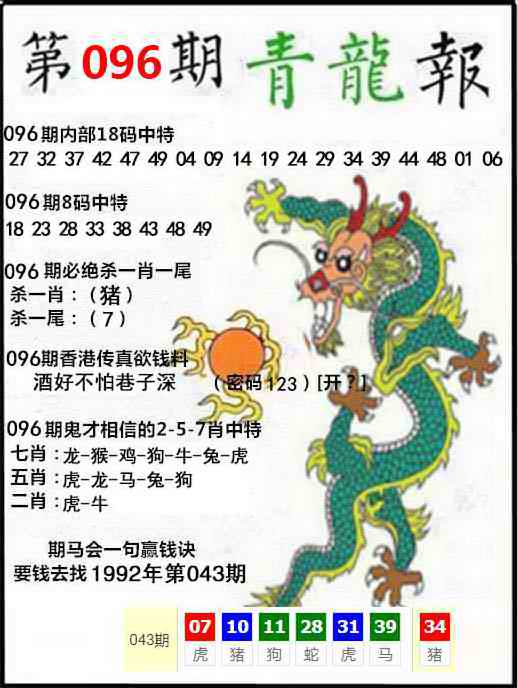 第096期 青龍報
096期内部18码中特
27 32 37 42 47 49 04 09 14 19 24 29 34 39 44 48 01 06
096期8码中特
18 23 28 33 38 43 48 49
096 期必绝杀一肖一尾
杀一肖：（猪）
杀一尾：（7）
096期香港传真欲钱料
酒好不怕巷子深 （密码123）[开？]
096期鬼才相信的2-5-7肖中特
七肖：龙-猴-鸡-狗-牛-兔-虎
五肖：虎-龙-马-兔-狗
二肖：虎-牛
期马会一句赢钱诀
要钱去找1992年第043期
043期 07 10 11 28 31 39 34
虎 猪 狗 蛇 虎 马 猪